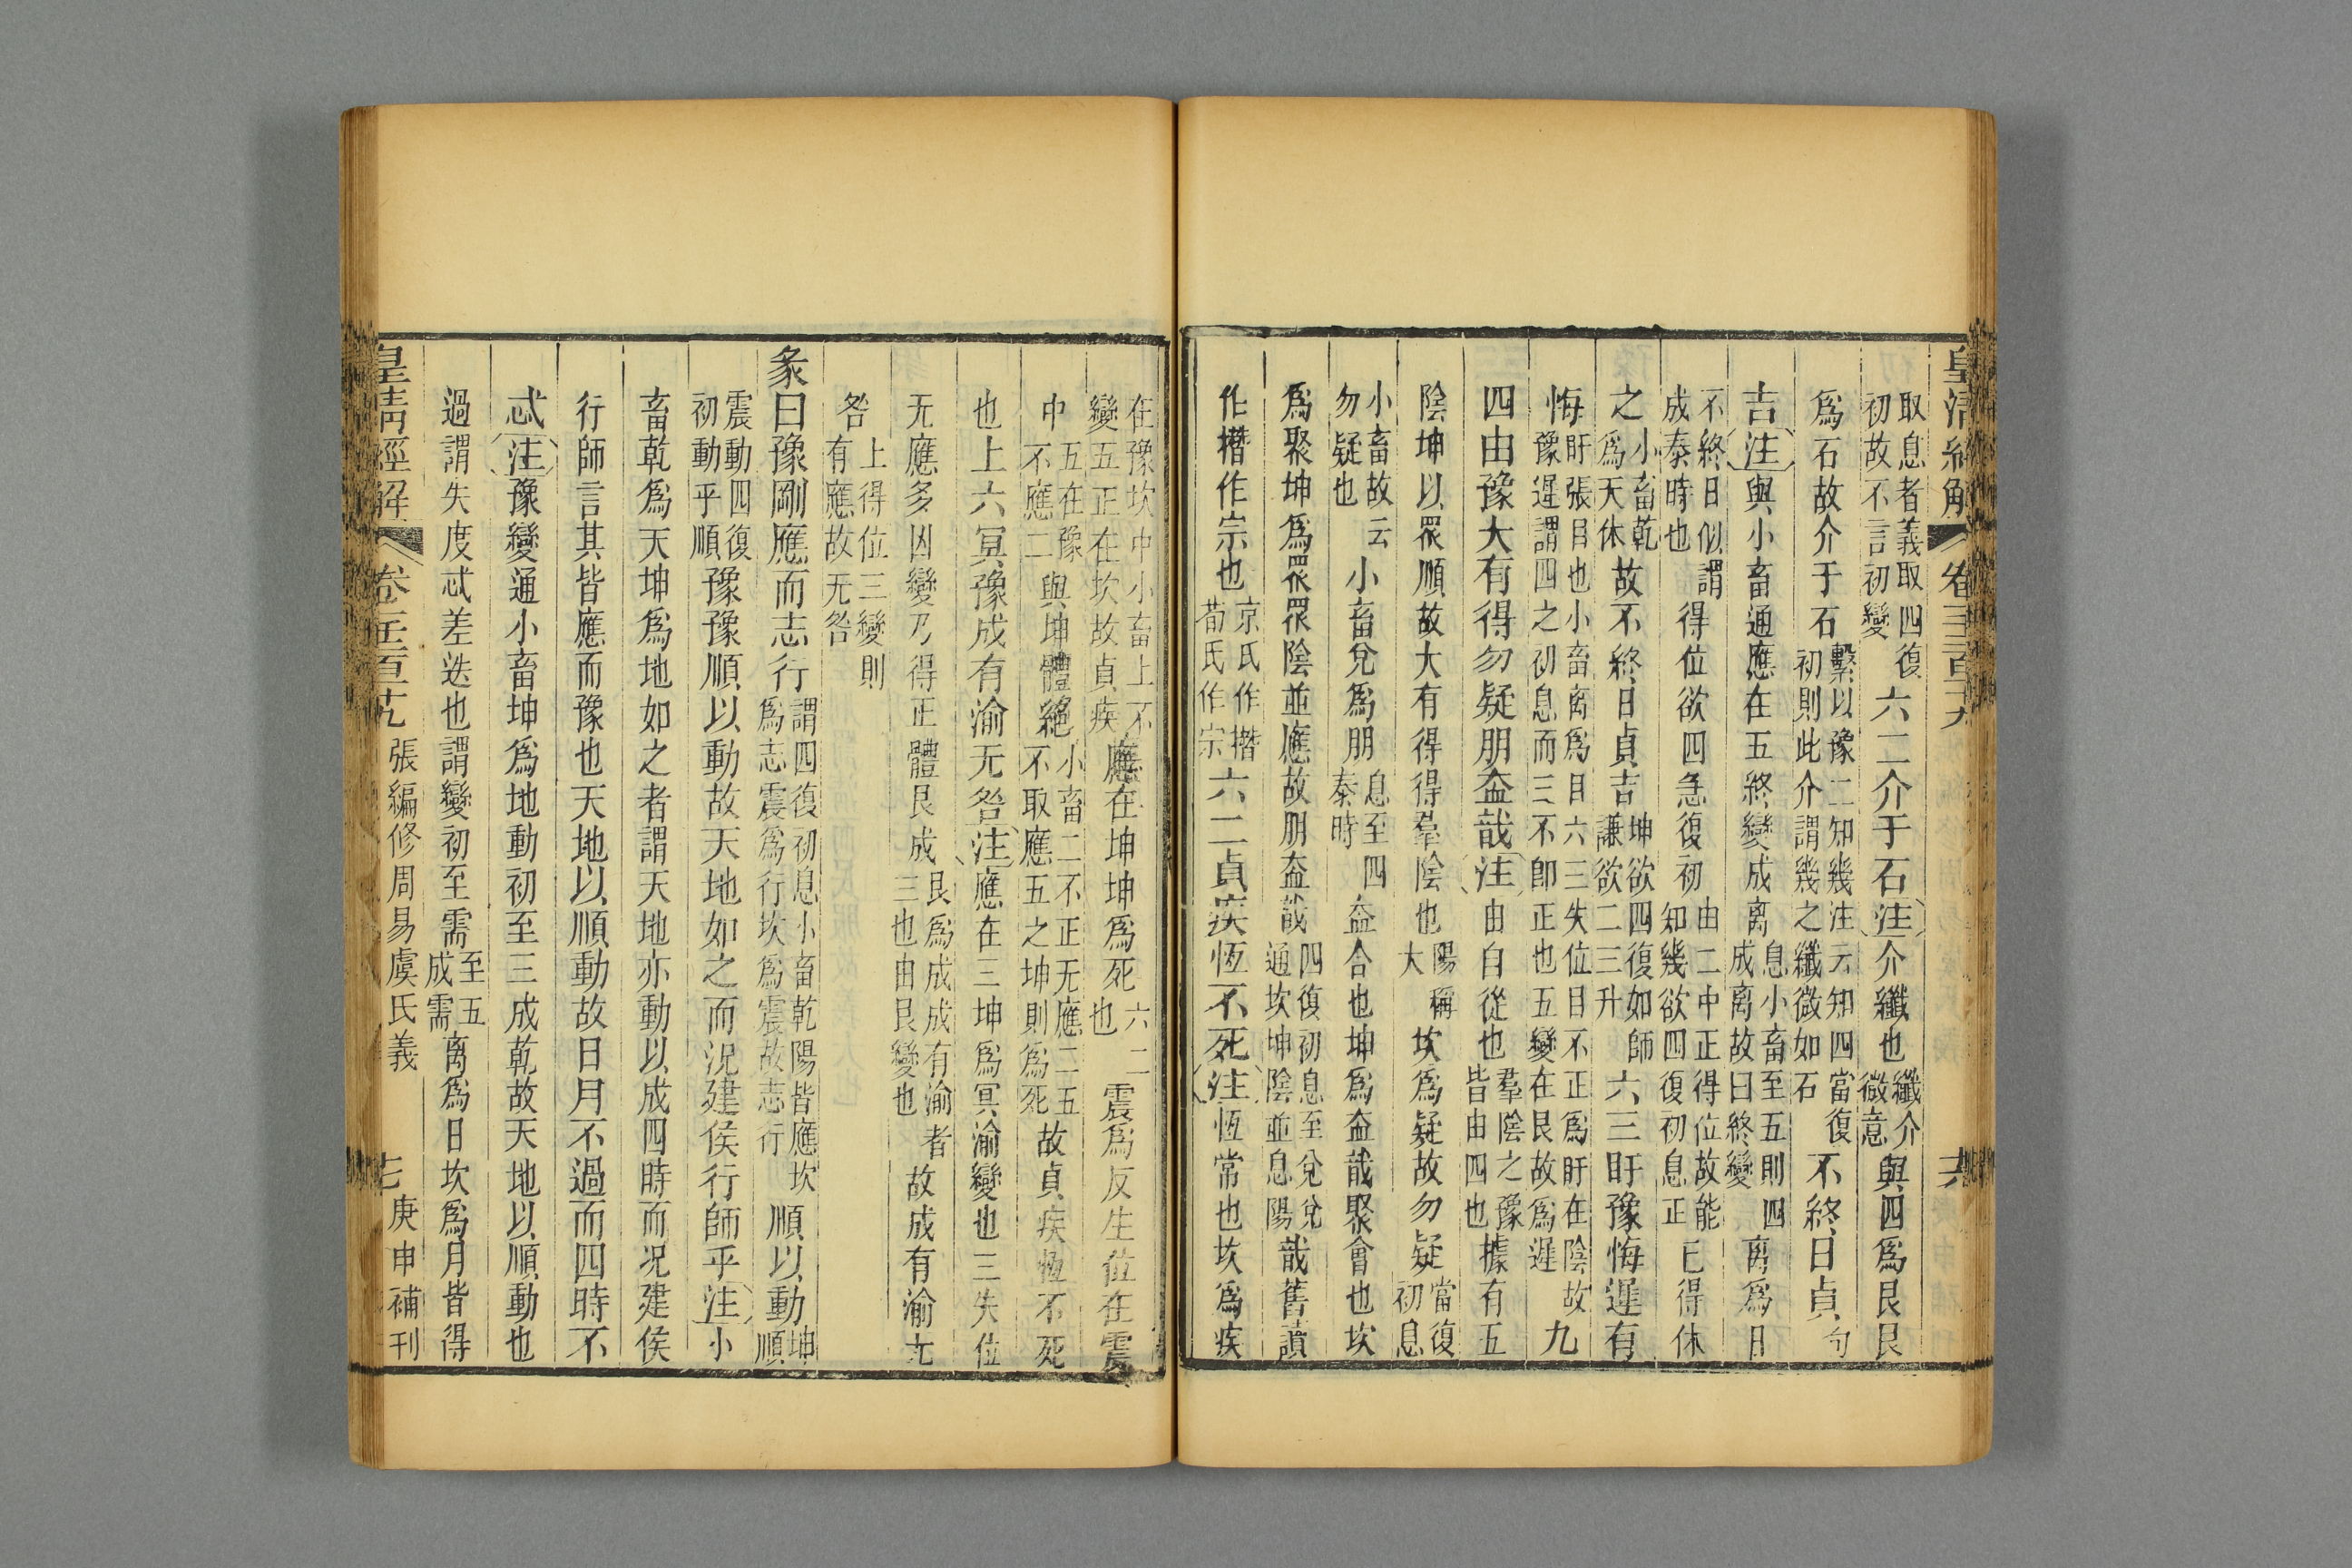 皇清經解 卷千二百十九 六
取息者義取四復初故不言初變六二介于石注介纖也纖介微意與四爲艮艮
爲石故介于石繫以豫二知幾注云知四當復初則此介謂幾之纖微如石不終日貞句
吉注與小畜通應在五終變成离息小畜至五則四成离故曰終變离爲日
不終日似謂成泰時也得位欲四急復初由二中正得位故能知幾欲四復初息正已得休
之小畜乾爲天休故不終日貞吉坤欲四復如師謙欲二三升六三盱豫悔遲有
悔盱張目也小畜离爲目六三失位目不正爲盱在陰故豫遲謂四之初息而三不卽正也五變在艮故爲遲九
四由豫大有得勿疑朋盍哉注由自從也羣陰之豫皆由四也據有五
陰坤以眾順故大有得得羣陰也陽稱大坎爲疑故勿疑當復初息
小畜故云勿疑也小畜兌爲朋息至四泰時盍合也坤爲盍哉聚會也坎
爲聚坤爲眾眾陰並應故朋盍哉四復初息至兌兌通坎坤陰並息陽哉舊讀
作撍作宗也京氏作撍荀氏作宗六二貞疾恆不死注恆常也坎爲疾
在豫坎中小畜上不變五正在坎故貞疾應在坤坤爲死六二也震爲反生位在震
中五在豫不應二與坤體絕小畜二不正无應二五不取應五之坤則爲死故貞疾恆不死
也上六冥豫成有渝无咎注應在三坤爲冥渝變也三失位
无應多凶變乃得正體艮成艮爲成成有渝者三也由艮變也故成有渝无
咎上得位三變則有應故无咎
彖曰豫剛應而志行謂四復初息小畜乾陽皆應坎爲志震爲行坎爲震故志行順以動坤順
震動四復初動乎順豫豫順以動故天地如之而況建侯行師乎注小
畜乾爲天坤爲地如之者謂天地亦動以成四時而況建侯
行師言其皆應而豫也天地以順動故日月不過而四時不
忒注豫變通小畜坤爲地動初至三成乾故天地以順動也
過謂失度忒差迭也謂變初至需至五成需离爲日坎爲月皆得
皇清經解 卷千二百十九 張編修周易虞氏義 七 庚申補刊